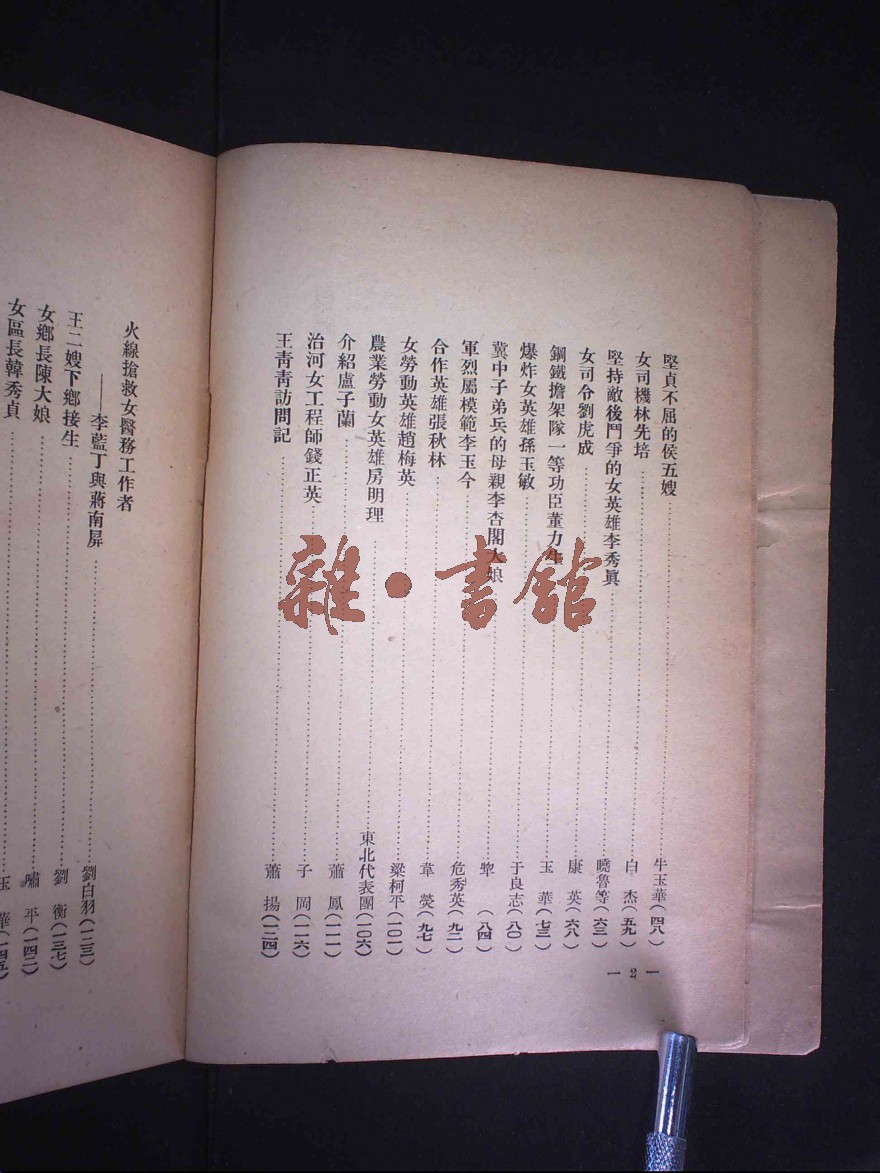 堅貞不屈的侯五嫂 牛玉華(四八)
女司機林先培 白杰(五九)
堅持敵後鬥爭的女英雄李秀眞 曉魯等(六三)
女司令劉虎成 康英(六八)
鋼鐵擔架隊一等功臣董力生 玉華(七三)
爆炸女英雄孫玉敏 于良志(八〇)
冀中子弟兵的母親李杏閣大娘 犂(八四)
軍烈屬模範李玉今 危秀英(九二)
合作英雄張秋林 韋熒(九七)
女勞動英雄趙梅英 梁柯平(一〇一)
農業勞動女英雄房明理 東北代表團(一〇六)
介紹盧子蘭 蕭鳳(一一一)
治河女工程師錢正英 子岡(一一六)
王青青訪問記 蕭揚(一二四)
— 2 —
火線搶救女醫務工作者
——李藍丁與蔣南屏 劉白羽(一二三)
王二嫂下鄉接生 劉衡(一三七)
女鄉長陳大娘 嘯平(一四二)
女區長韓秀貞 玉華(一四五)
雜·書館